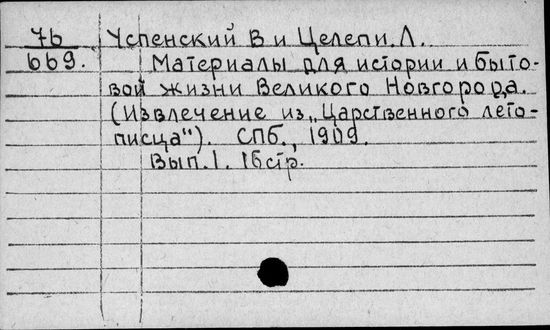 76 Успенский В и Целепи. Л.
669. Материалы для истории и быто-
вой жизни Великого Новгорода.
(Извлечение из „Царственного лето-
писца"). СПб., 1909.
Вып. 1. 16 стр.